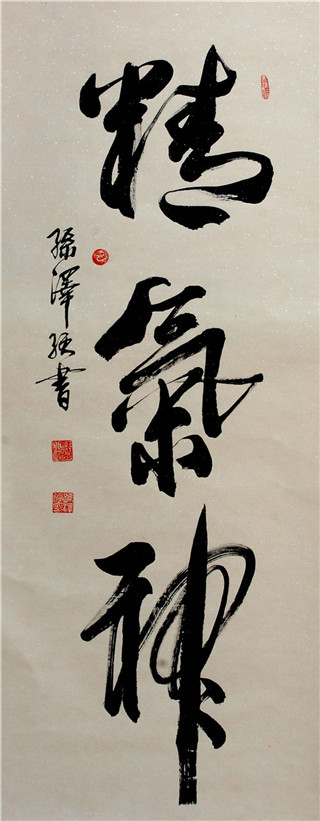 精氣神
孫澤琥書